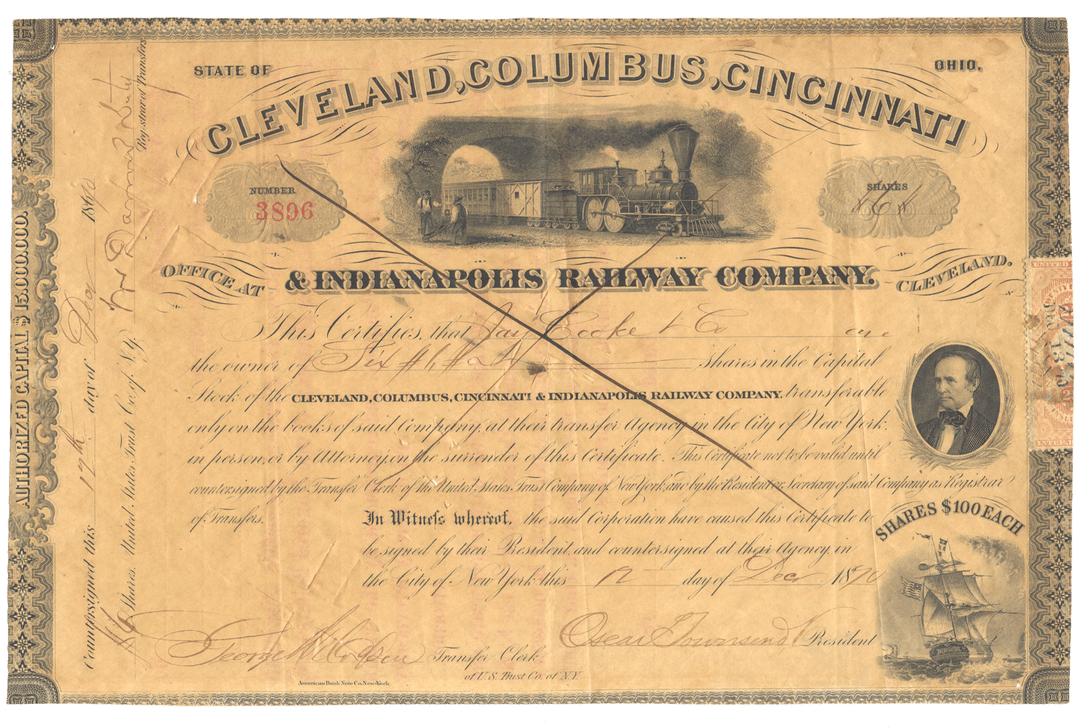 STATE OF OHIO.
CLEVELAND, COLUMBUS, CINCINNATI
NUMBER
3896
SHARES
x6x
OFFICE AT & INDIANAPOLIS RAILWAY COMPANY. CLEVELAND.
This Certifies, that Jay Cooke & Co are
the owner of Six shares in the Capital
Stock of the CLEVELAND, COLUMBUS, CINCINNATI & INDIANAPOLIS RAILWAY COMPANY. transferable
only on the books of said Company, at their transfer Agency in the City of New York,
in person, or by Attorney, on the surrender of this Certificate. This Certificate not to be valid until
countersigned by the Transfer Clerk of the United States Trust Company of New York, and by the President or Secretary of said Company as Registrar
of Transfers.
In Witness whereof, the said Corporation have caused this Certificate to
be signed by their President and countersigned at their Agency in
the City of New York this 12 day of Dec 1870
Oscar Townsend President
Transfer Clerk,
of U.S. Trust Co. of N.Y.
American Bank Note Co. New-York.
SHARES $100 EACH
AUTHORIZED CAPITAL $15.000.000.
Countersigned this day of Dec 1870
Shares. United States Trust Co. of N.Y.
Registrar of Transfers
UNITED